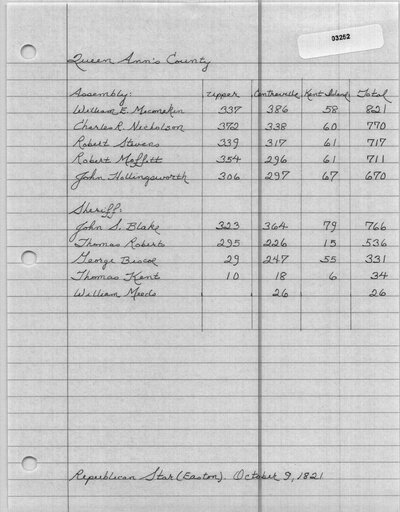 03252
Queen Ann's County
Assembly: Upper Centreville Kent Island Total
William E. Meconekin 337 386 58 821
Charles R. Nicholson 372 338 60 770
Robert Stevens 339 317 61 717
Robert Moffett 354 296 61 711
John Hollingsworth 306 297 67 670
Sheriff:
John S. Blake 323 364 79 766
Thomas Roberts 295 226 15 536
George Biscoe 29 247 55 331
Thomas Kent 10 18 6 34
William Meeds 26 26
Republican Star (Easton). October 9, 1821